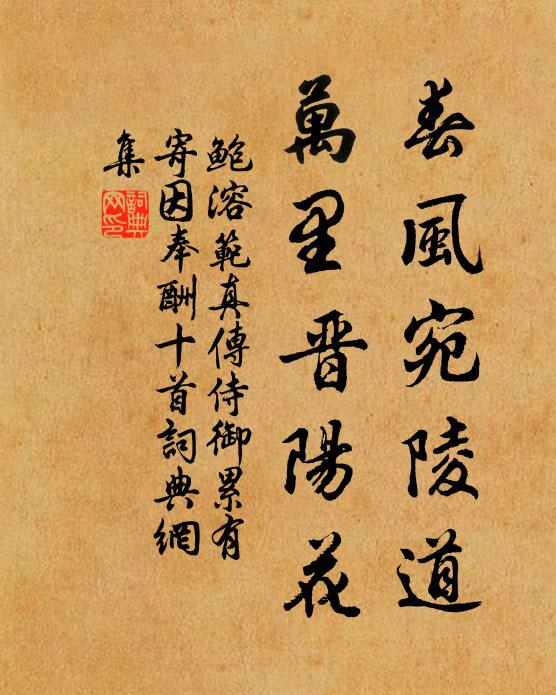 春風宛陵道
萬里晉陽花
鮑溶範真傳侍御累有
寄因奉酬十首詞典網
集
詞典
网印